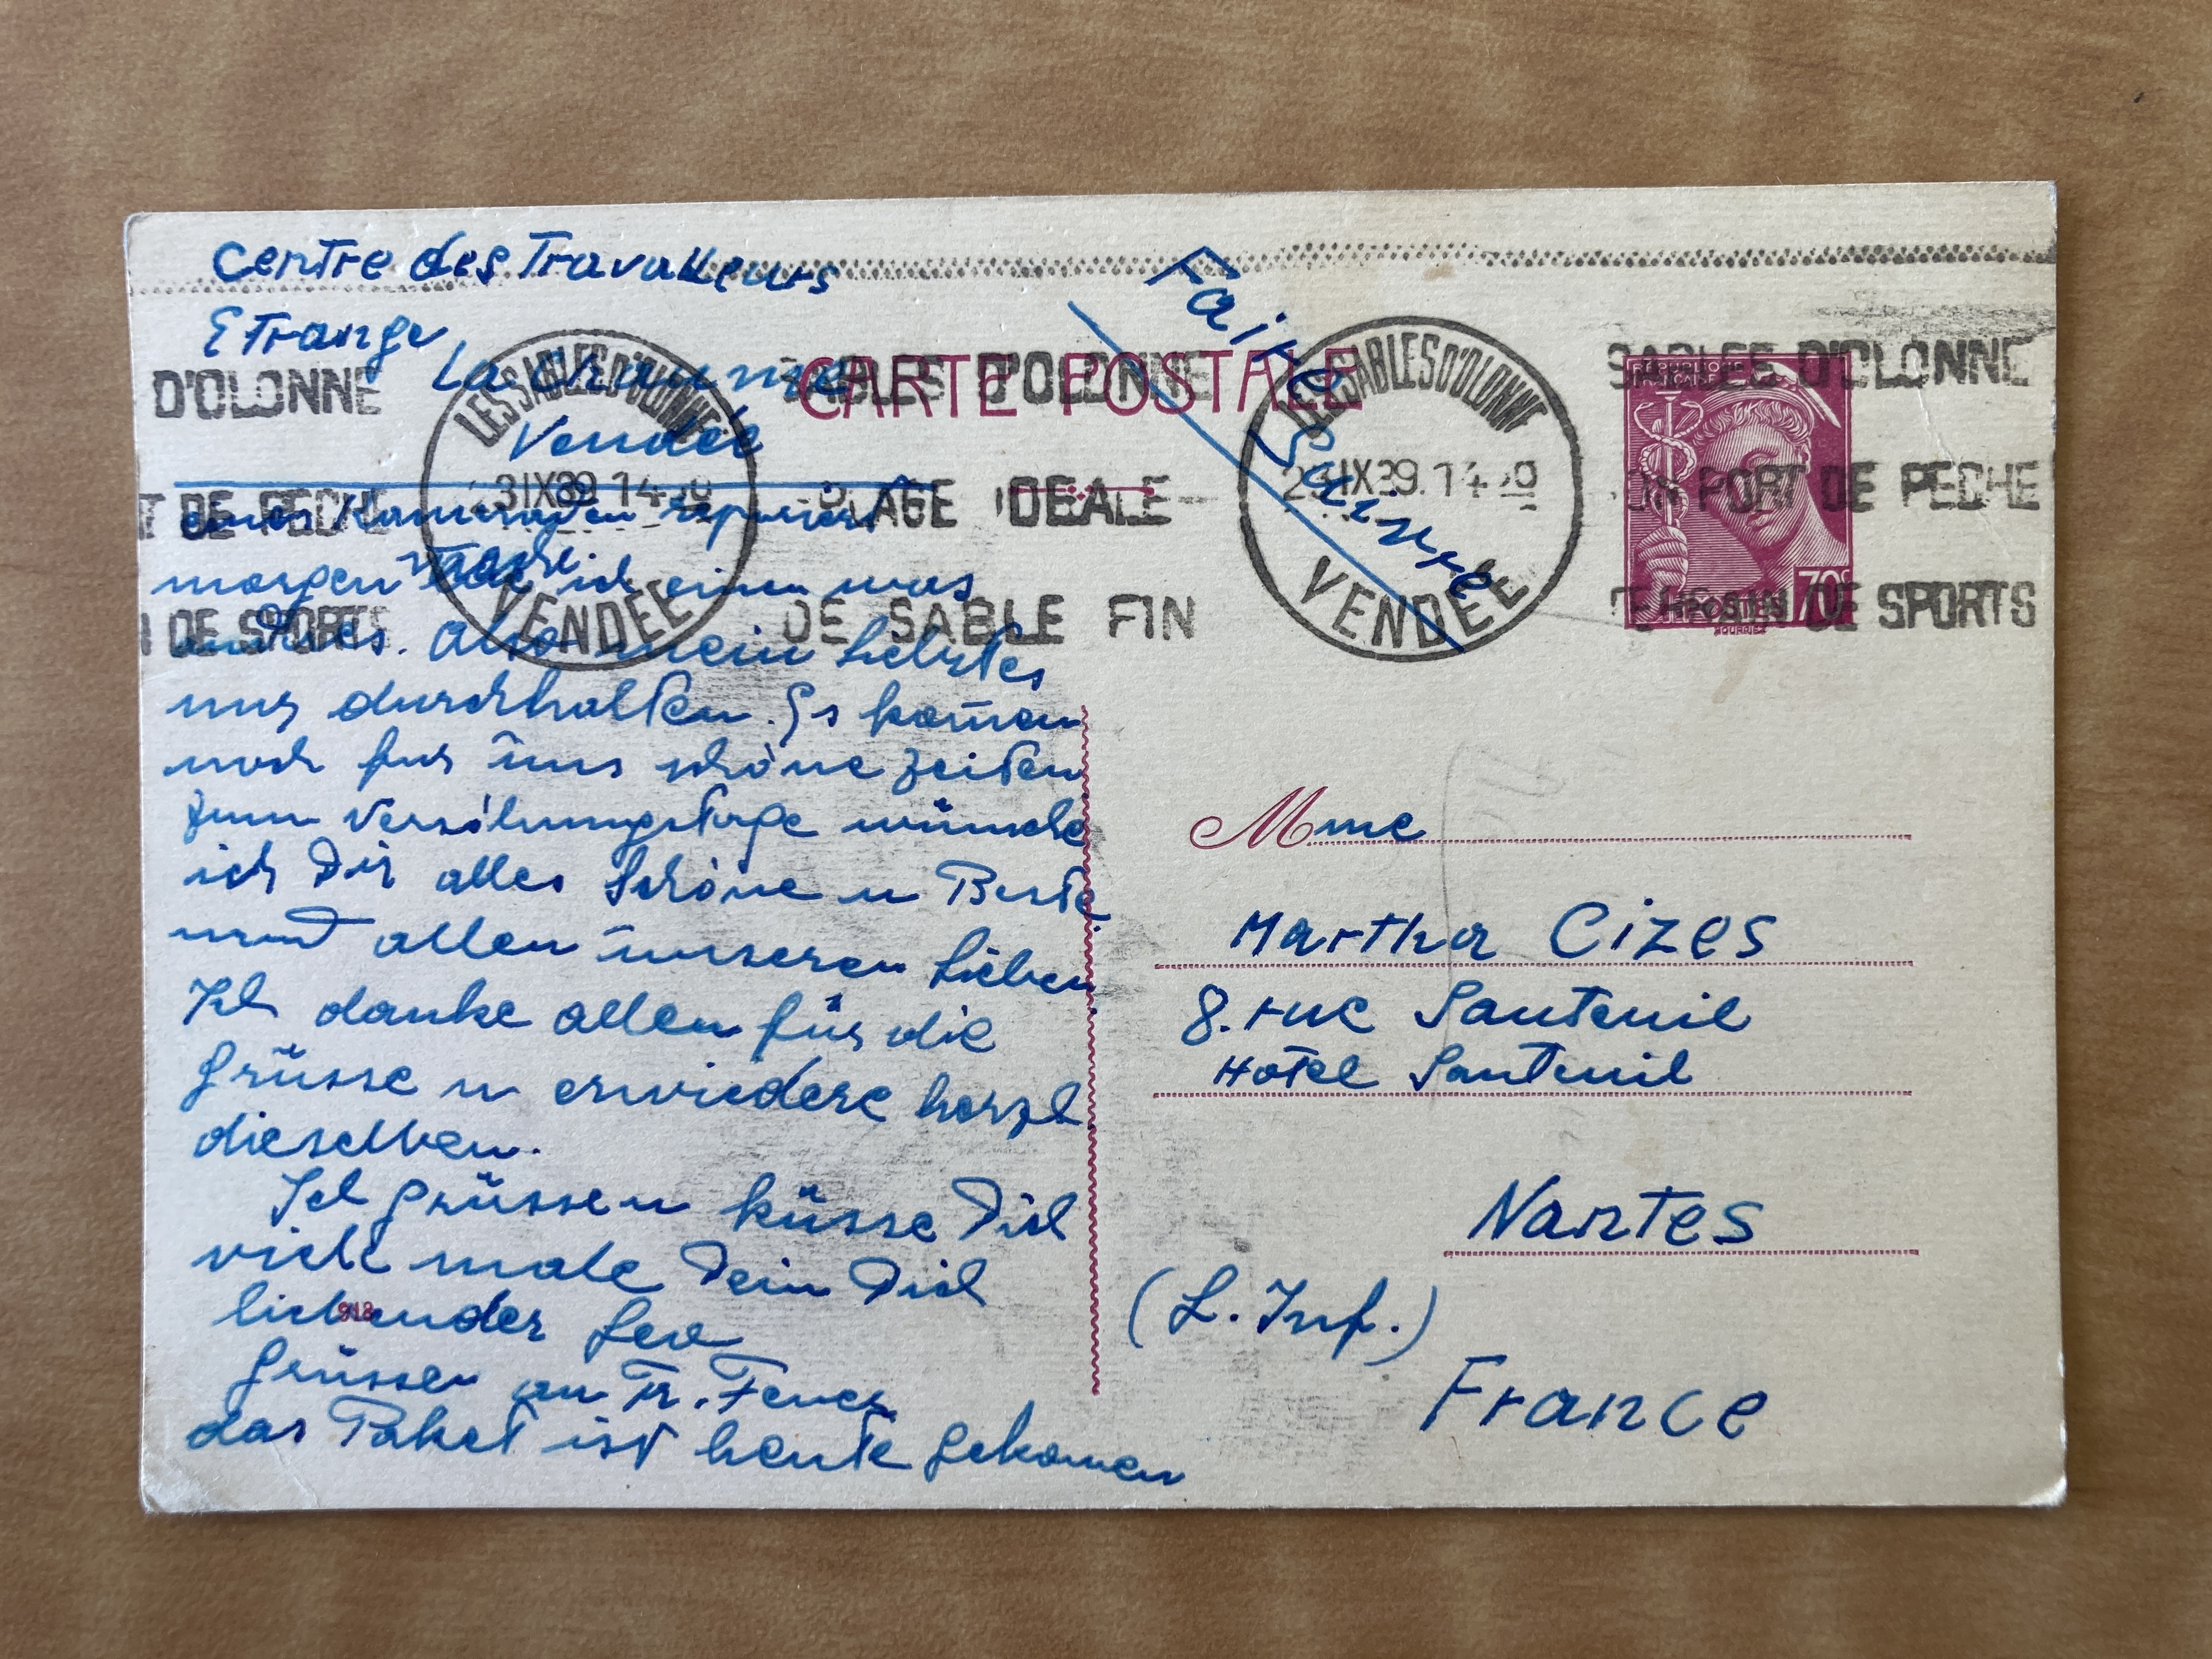 Centre des Travalleurs
Etrange
La Chaume
Vendée
eines Kameraden repariert
morgen mache ich einem was
andres. Also mein liebstes
nur durchhalten. Es kom̄en
noch fur uns schöne Zeiten
zum Versöhnungstage wünsche
ich Dir alles Schöne u Beste
und allen unseren Lieben.
Ich danke allen für die
Grüsse u erwiedere herzl
dieselben.
Ich grüsse u küsse Dich
viele male Dein Dich
liebender Leo
Grüsse an Fr.
das Paket ist heute gekomen
918
Faire Suivre
CARTE POSTALE
D'OLONNE
T DE PECHE
N DE SPORTS
LES SABLES D'OLONNE
23 IX 39 14
VENDÉE
SABLES D'OLONNE
PLAGE IDEALE
DE SABLE FIN
LES SABLES D'OLONNE
23 IX 39. 14
VENDÉE
SABLES D'OLONNE
SON PORT DE PECHE
TERRAIN DE SPORTS
REPUBLIQUE
FRANÇAISE
POSTES 70c
HOURRIEZ
Mme
Martha Cizes
8. rue Santeuil
Hotel Santeuil
Nantes
(L. Inf.)
France